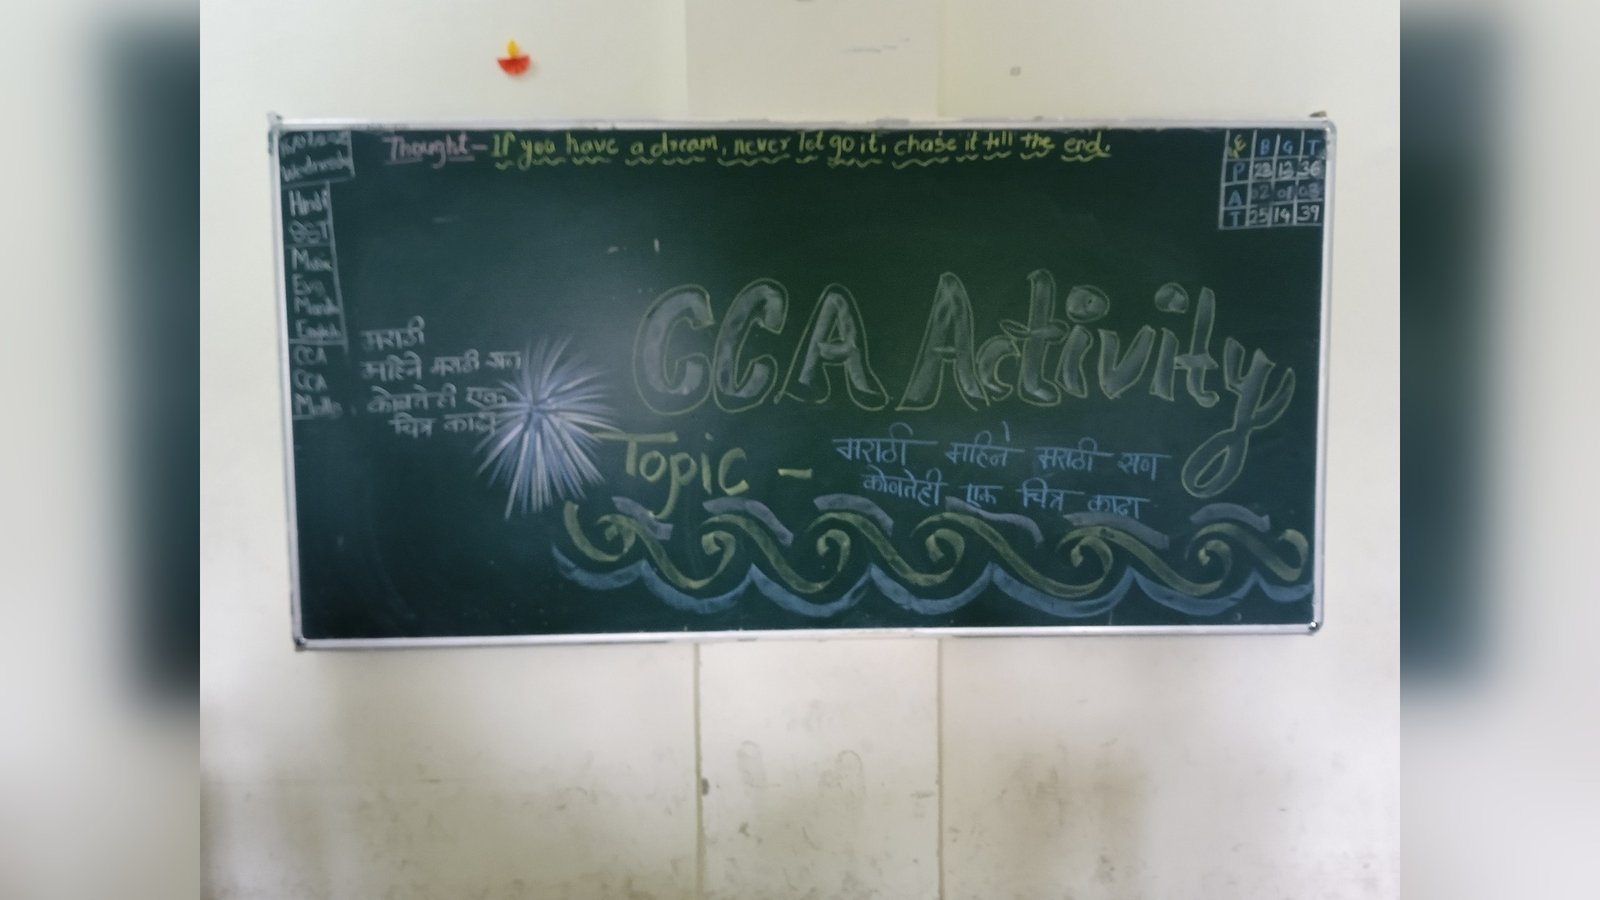 Wednesday
Thought - If you have a dream, never let go it, chase it till the end.
B G T
P 23 13 36
A 02 01 03
T 25 14 39
Hindi
SST
Music
Evs
Marathi
English
CCA
CCA
Maths
मराठी
महिने मराठी सण
कोणतेही एक
चित्र काढा
CCA Activity
Topic - मराठी महिने मराठी सण
कोणतेही एक चित्र काढा